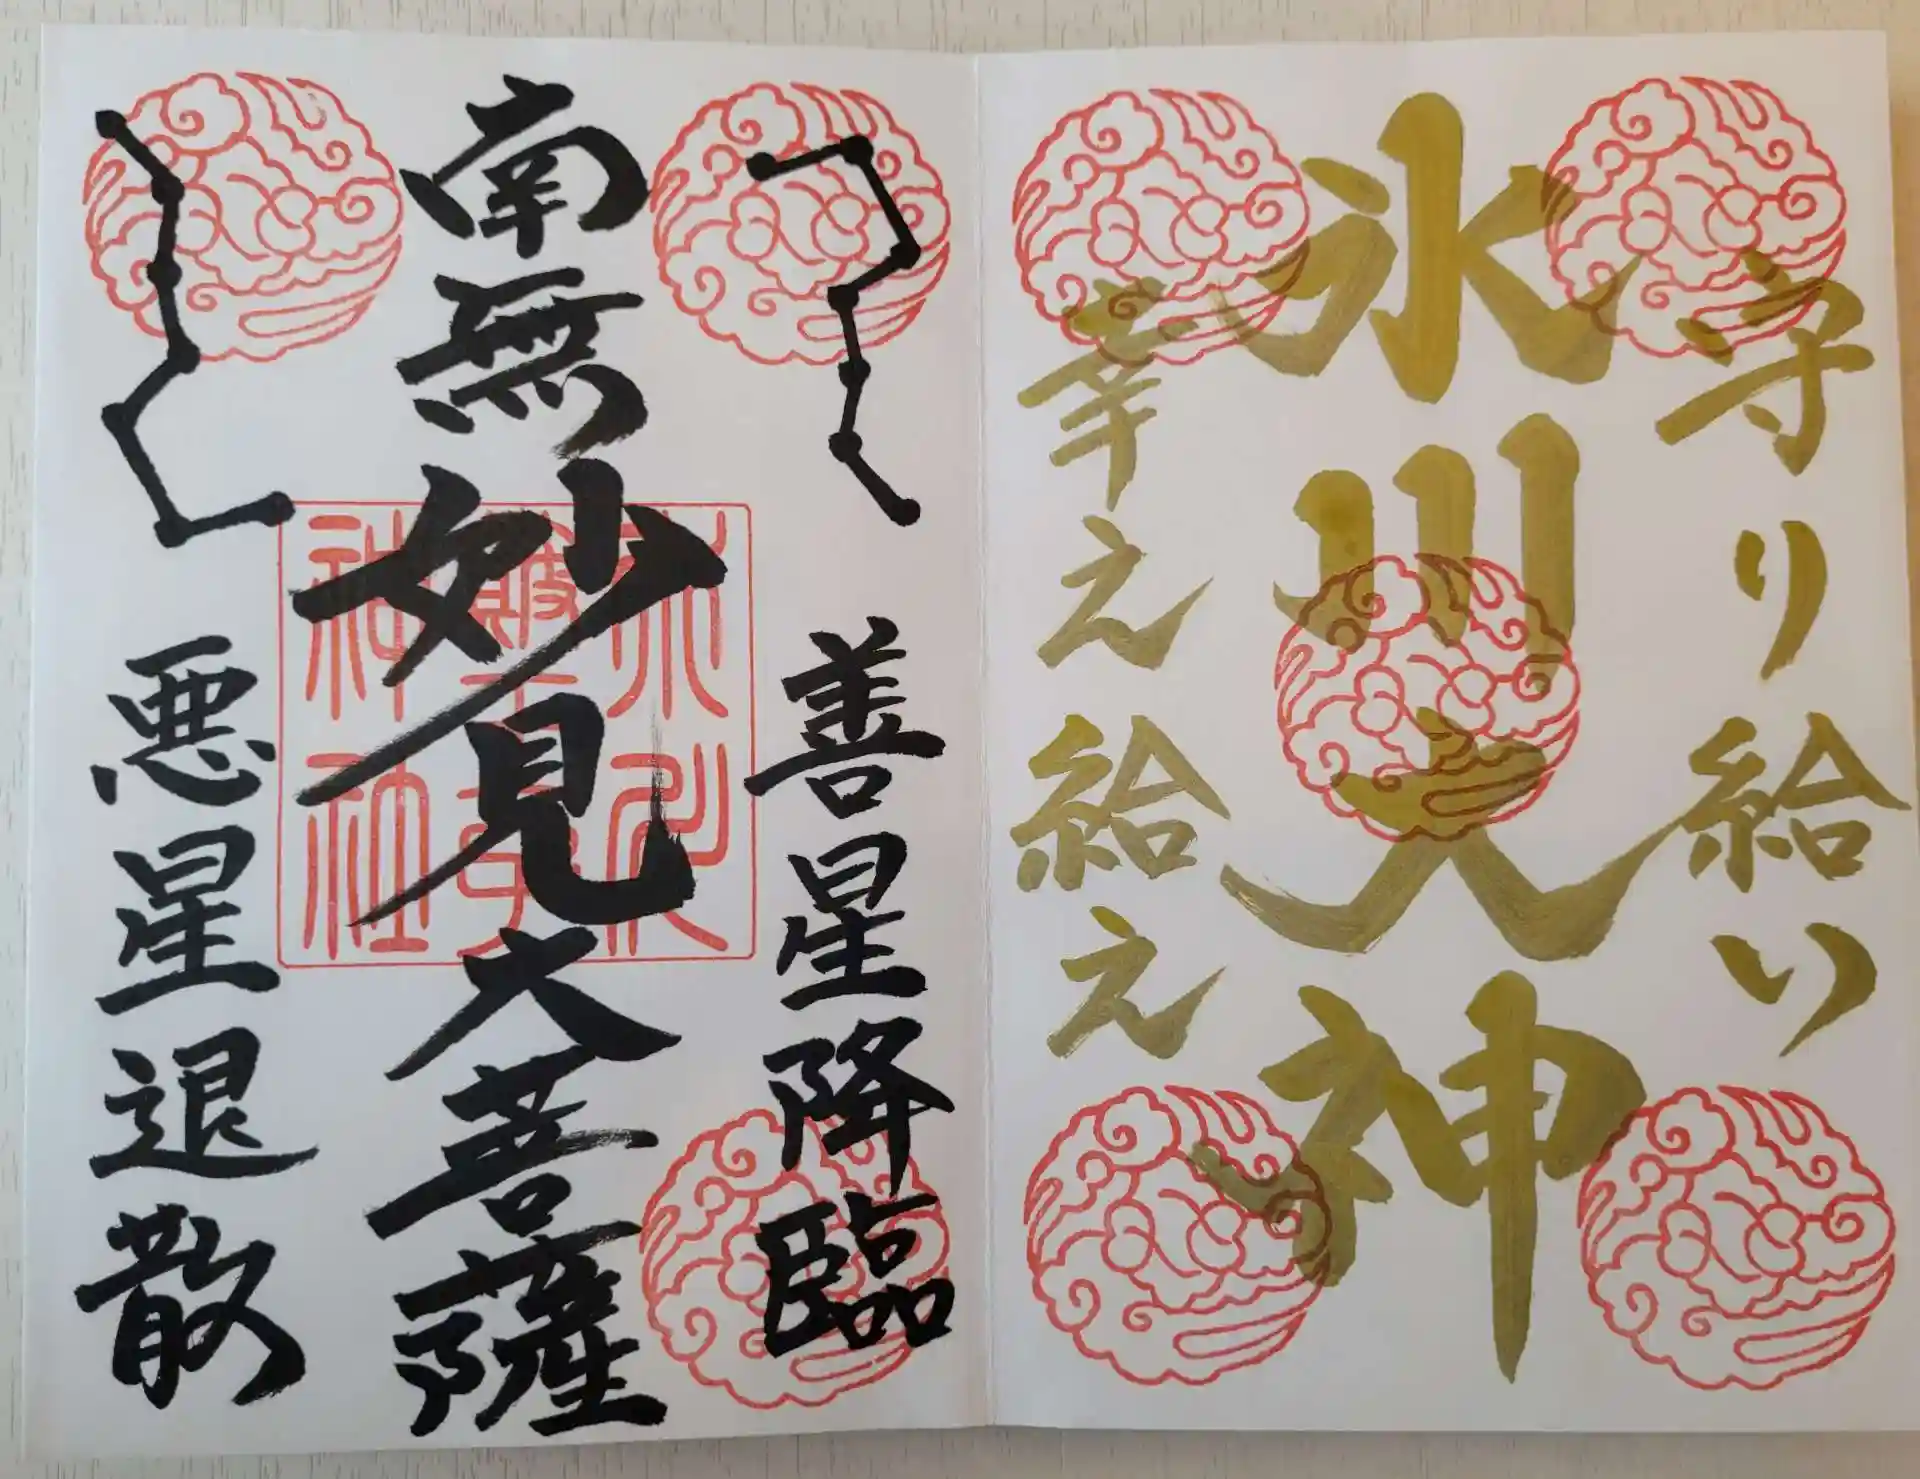 守り給い
氷川大神
幸え給え
善星降臨
南無妙見大菩薩
悪星退散
神社